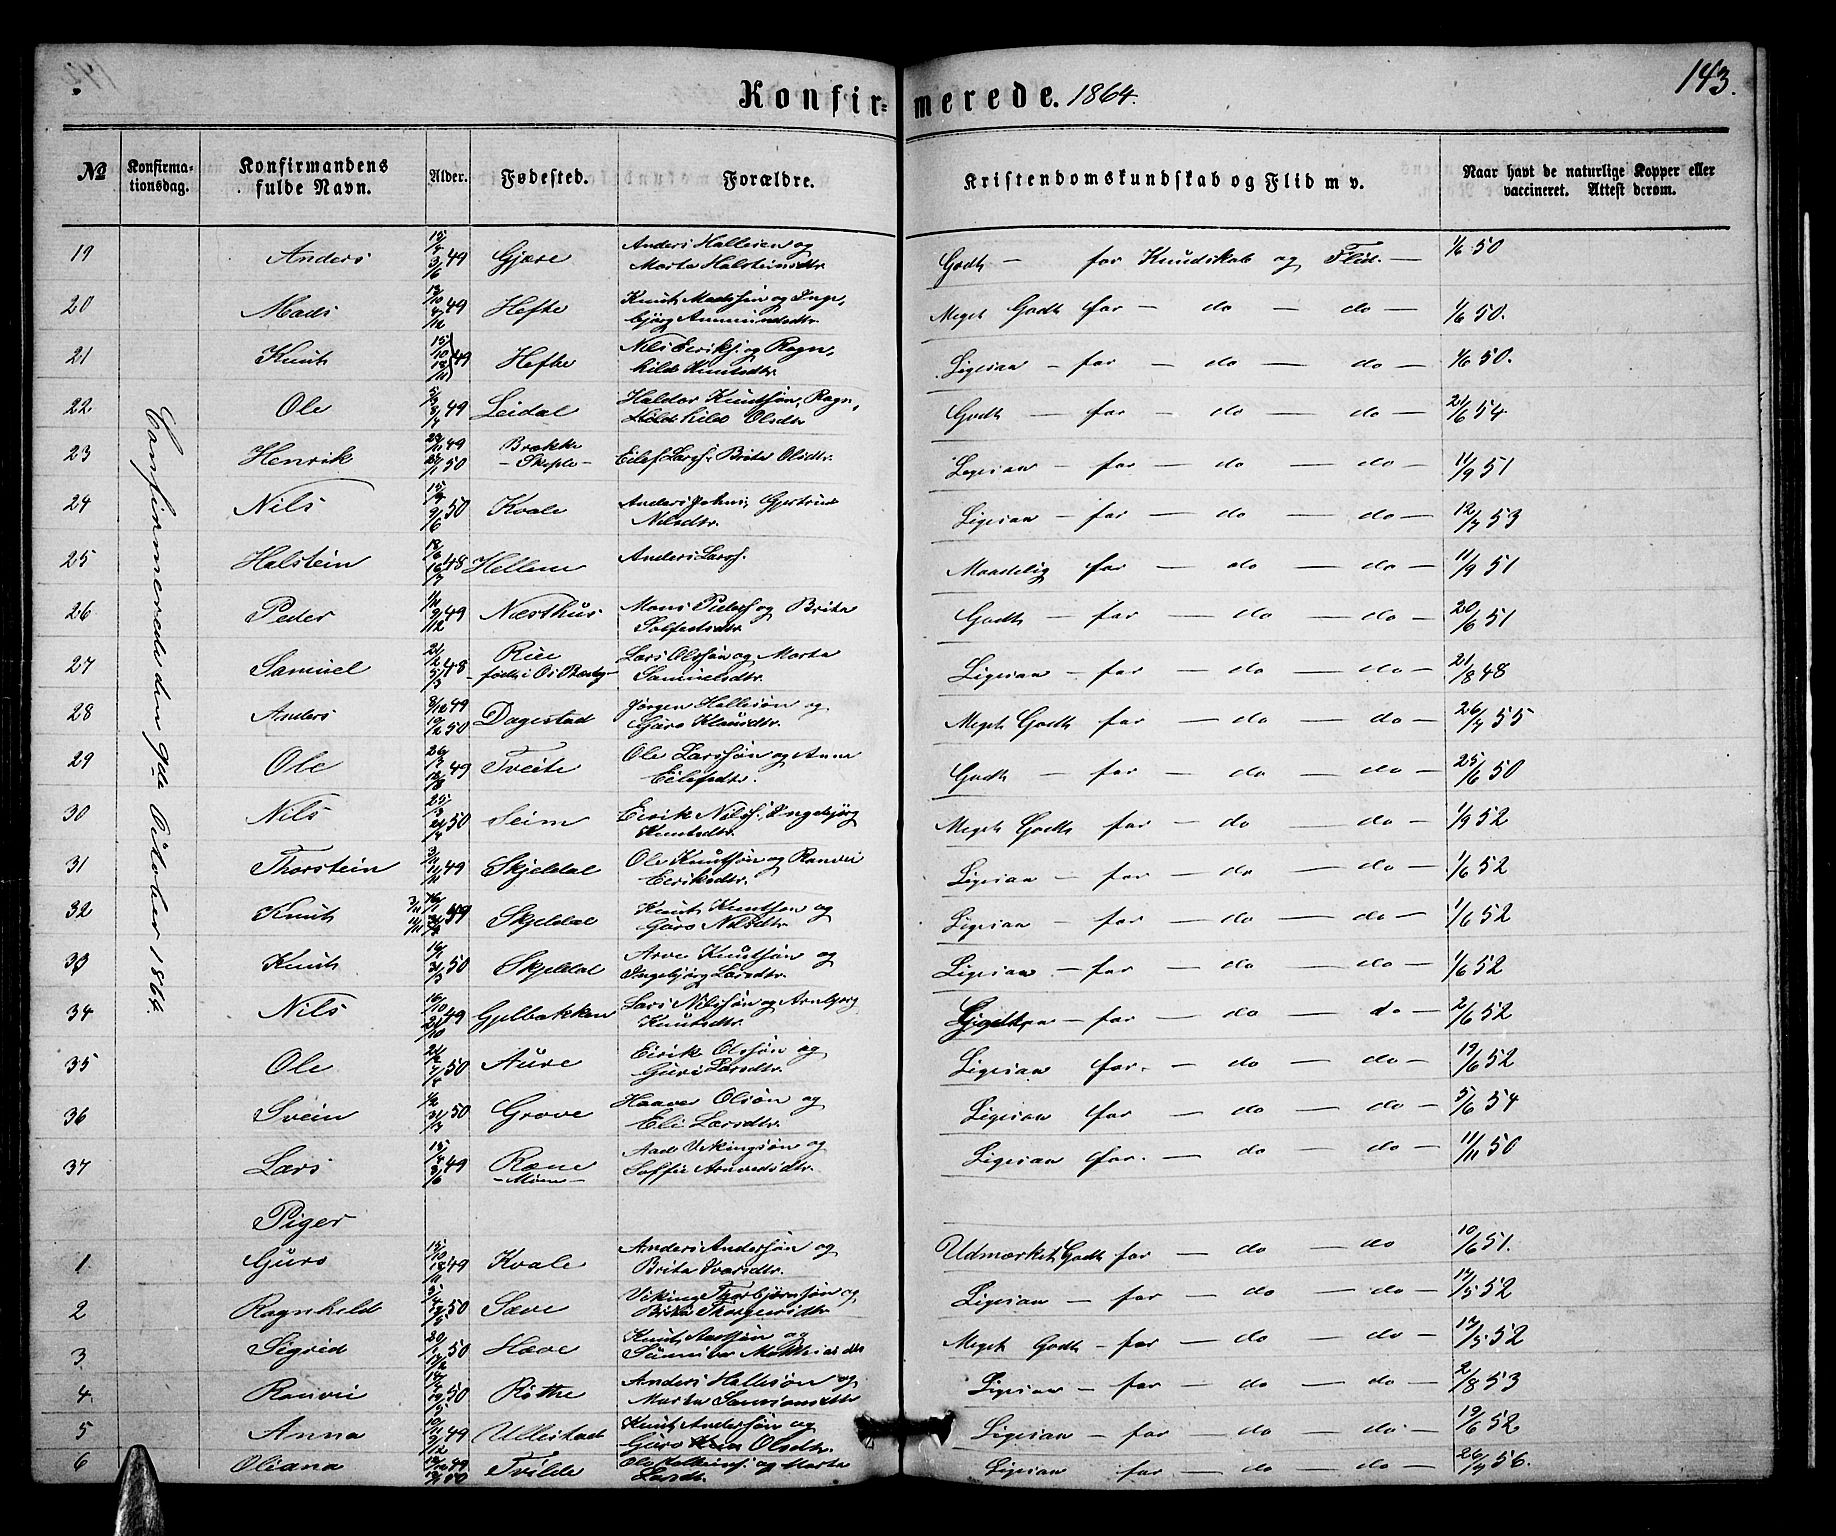 Konfirmerede. 1864.
143.
No
Konfirmationsdag.
Konfirmandens fulde Navn.
Alder.
Fødested.
Forældre.
Kristendomskundskab og Flid m v.
Naar havt de naturlige Kopper eller vaccineret. Attest derom.
Confirmerede den 9de October 1864.
19 Anders 49 Gjøre Anders Hallesen og
Marta Halsteinsdtr
Godt — for Kundskab og Flid — 1/6 50
20 Mads 49 Hefte Knut Madssøn og Inge,
bjørg Ammundsdtr.
Meget Godt for — do — do — 1/6 50.
21 Knut 49 Hefte Nils Eiriks. og Ragn,
hild Knutsdtr
Ligesaa — for — do — do — 1/6 50.
22 Ole 49 Leidal Haldor Knutsøn, Ragn,
hild Olsdtr
Godt — for — do — do — 21/6 54
23 Henrik 49 50 Brække
Eilef Larss. Brita Olsdtr.
Ligesaa — for — do — do — 11/9 51
24 Nils 50 Kvale Anders Johns, Gjertrud
Nilsdtr.
Ligesaa — for — do — do — 12/7 53
25 Halstein 48 Hellem Anders Larss.
Maadelig for — do — do — 11/9 51
26 Peder 49 Næsthus Mons Peders. og Brita
Godt — for — do — do — 20/6 51
27 Samuel 48 Rue
Lars Olssøn og Marta
Samuelsdtr.
Ligesaa — for — do — do — 21/8 48
28 Anders 49 50 Dagestad Jørgen Hallesøn og
Guro Klausdtr
Meget Godt for — do — do — 26/7 55
29 Ole 49 Tveite Ole Larssøn og Anna
Eilefsdtr.
Godt — for — do — do — 25/6 50
30 Nils 50 Seim Eirik Nilss. Ingebjørg
Knutsdtr.
Meget Godt for — do — do — 1/9 52
31 Thorstein 49 Skjeldal Ole Knutsøn og Ranvei
Eeriksdtr.
Ligesaa — for — do — do — 1/6 52
32 Knut 49 Skjeldal Knut Knutsøn og
Guro Nilsdtr
Ligesaa — for — do — do — 1/6 52
33 Knut 50 Skjeldal Arve Knutsøn og
Ingebjørg Larsdtr.
Ligesaa — for — do — do — 1/6 52
34 Nils 49 Gjelbakken Lars Nilssøn og Arnbjørg
Knutsdtr.
— for — do — do — 2/6 52
35 Ole 50 Aure Eirik Olssøn og
Guri Larsdtr.
Ligesaa for — do — do — 19/6 52
36 Svein 50 Grove Haaver Olsøn og
Eli Larsdtr.
Ligesaa for — do — do — 5/6 54
37 Lars 49 Røne
— Moen —
Aad Vikingsøn og
Soffie Arnvedsdtr.
Ligesaa for — do — do — 11/11 50
Piger
1 Guro 49 Kvale Anders Andersøn og
Brita Ivarsdtr.
Udmærket Godt for — do — do 10/6 51.
2 Ragnhild 50 Sæve Viking Thorbjørnsøn og
Brita Thorgeirsdtr
Ligesaa — for — do — do — 17/5 52
3 Sigrid 50 Hæve Knut Aadsøn og
Sunniva Matthiasdtr
Meget Godt — for — do — do — 17/5 52
4. Ranvei 50 Røthe Anders Hallesøn og
Marta Samsonsdtr
Ligesaa — for — do — do — 2/8 53
5 Anna 49 Ullestad Knut Andersøn og
Guro Olsdtr.
Ligesaa — for — do — do — 19/6 52
6 Oliana 49 50 Tvilde Ole og Marta
Larsdtr.
Ligesaa for — do — do — 26/9 56.